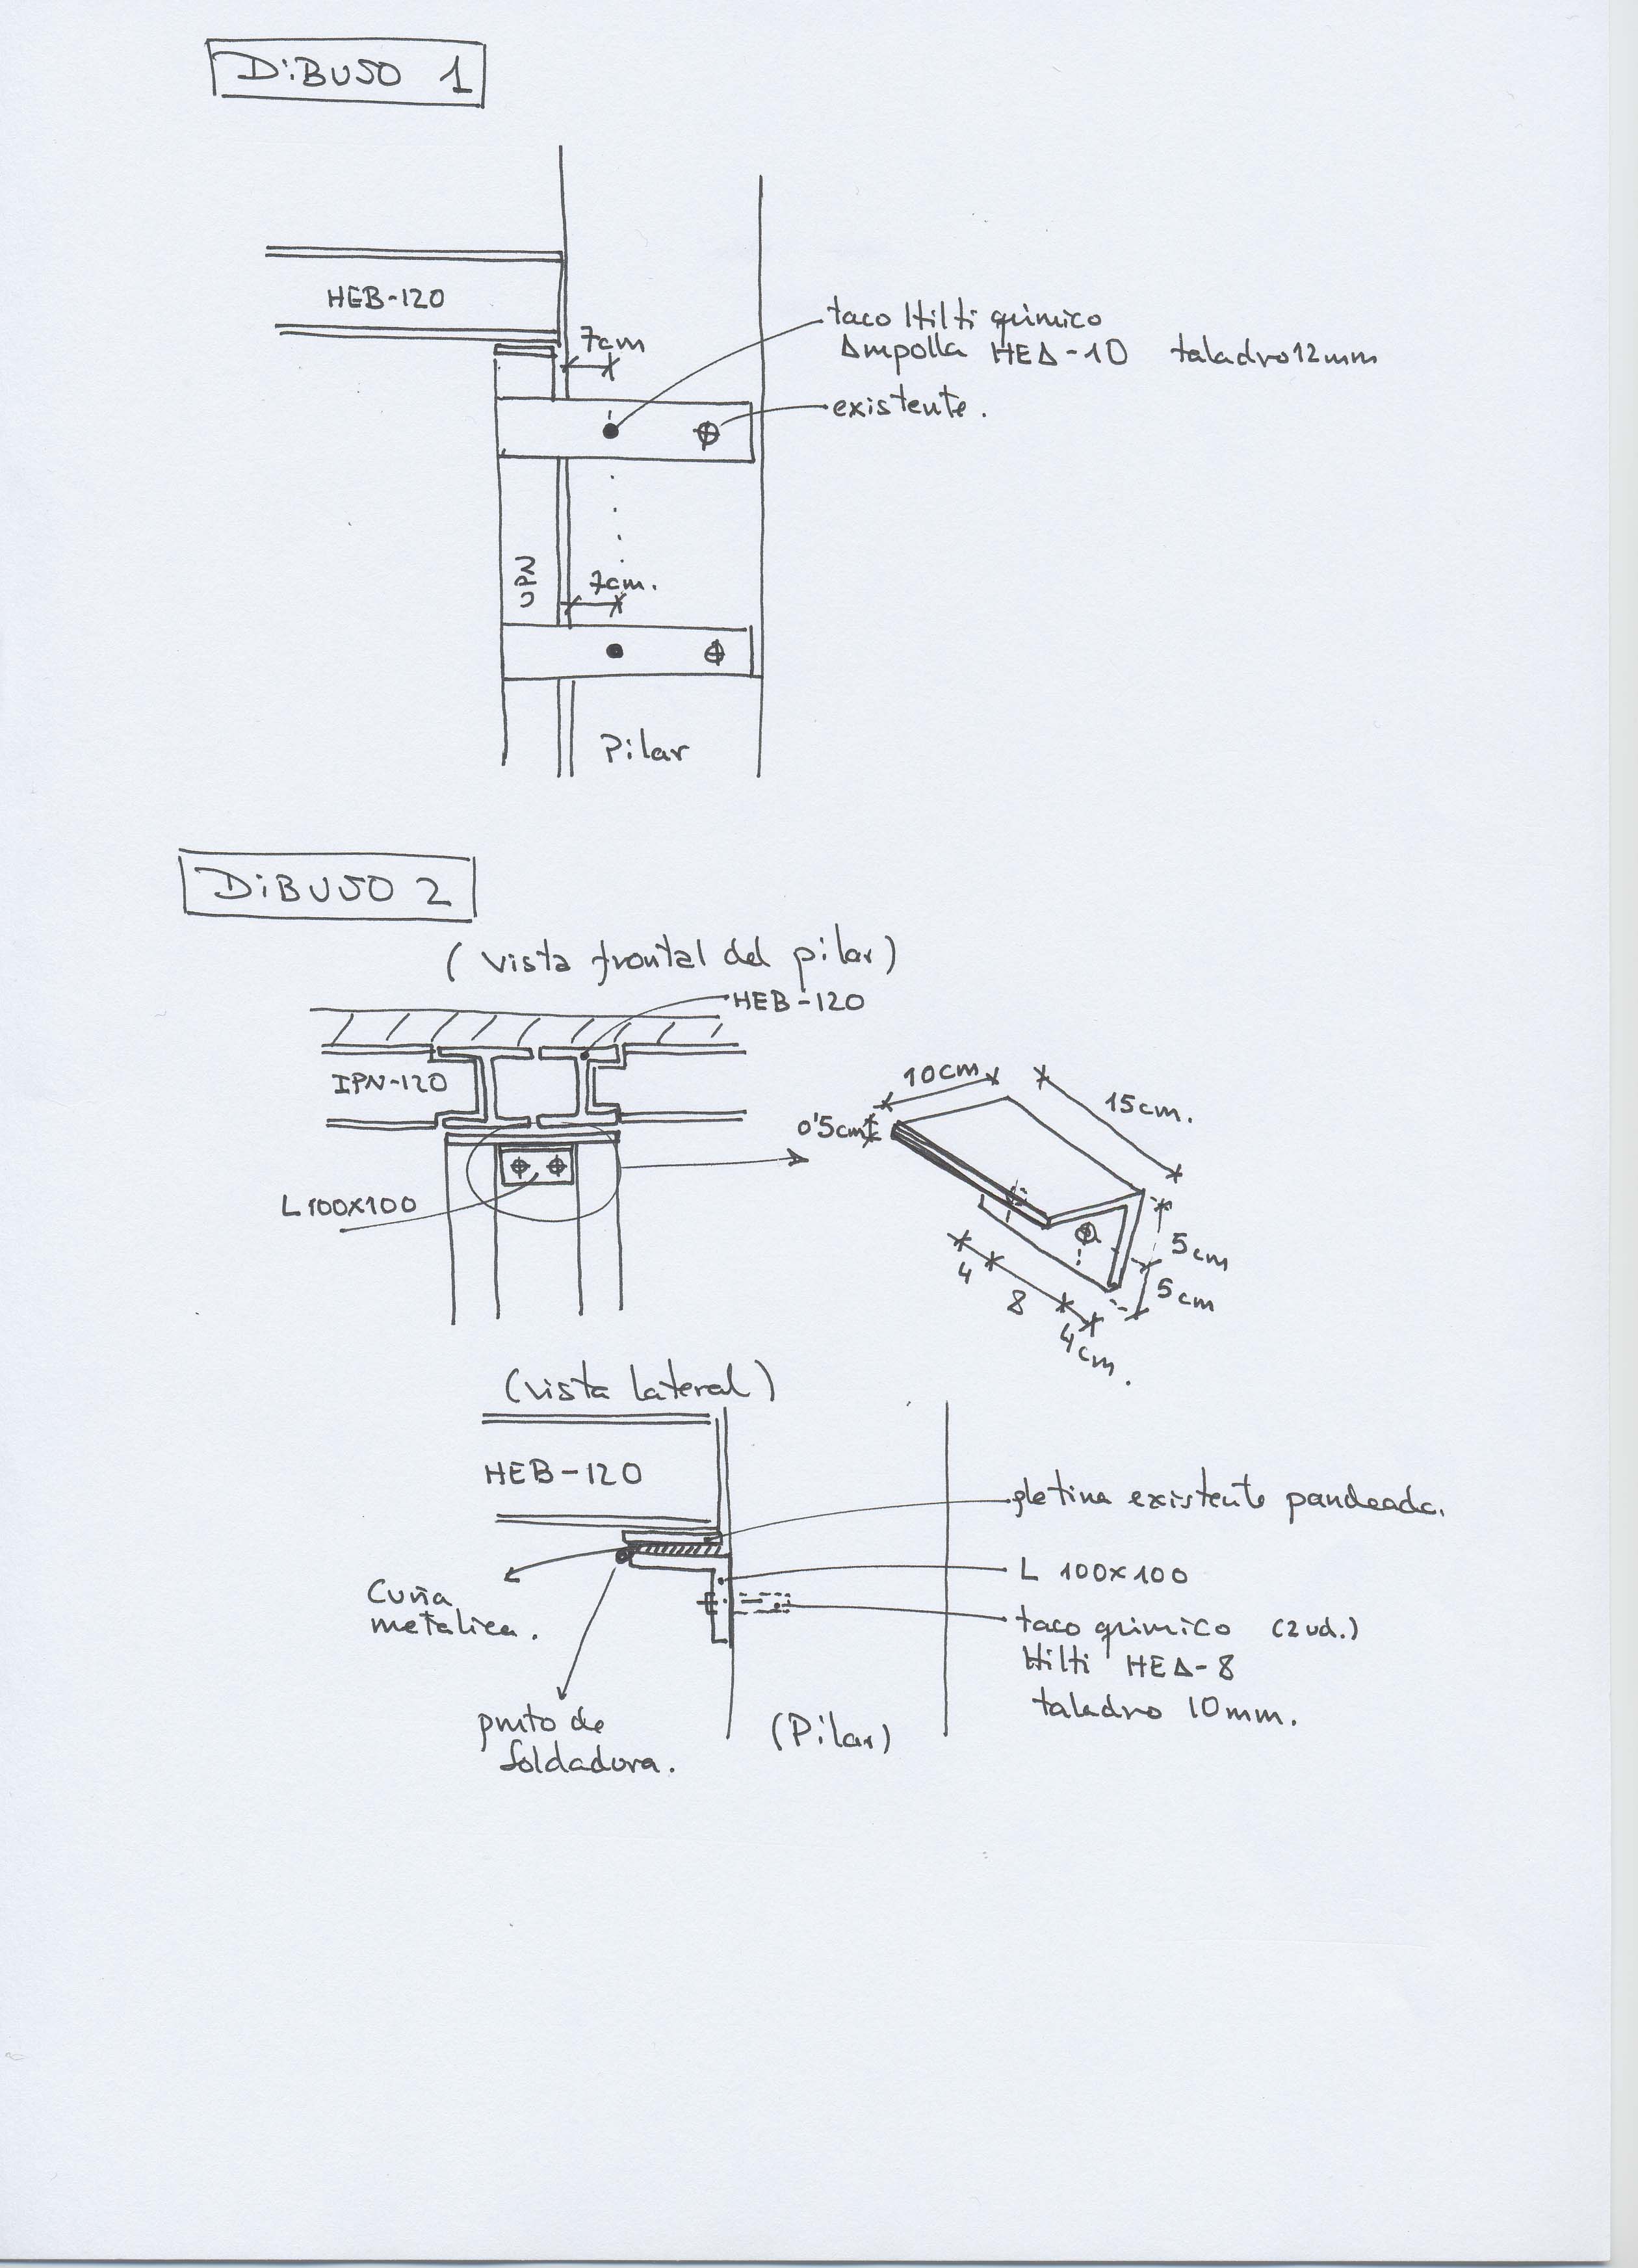 DiBUJO 1
HEB-120
7cm
taco Hilti quimico
Ampolla HEA-10 taladro 12mm
existente.
UPN
7cm.
Pilar
DiBUJO 2
(vista frontal del pilar)
HEB-120
IPN-120
L 100x100
10cm
15cm.
0'5cm
5cm
5cm
4
8
4cm.
(vista lateral)
HEB-120
pletina existente pandeada.
L 100x100
taco quimico (2ud.)
Hilti HEA-8
taladro 10mm.
Cuña
metalica.
punto de
soldadura.
(Pilar)